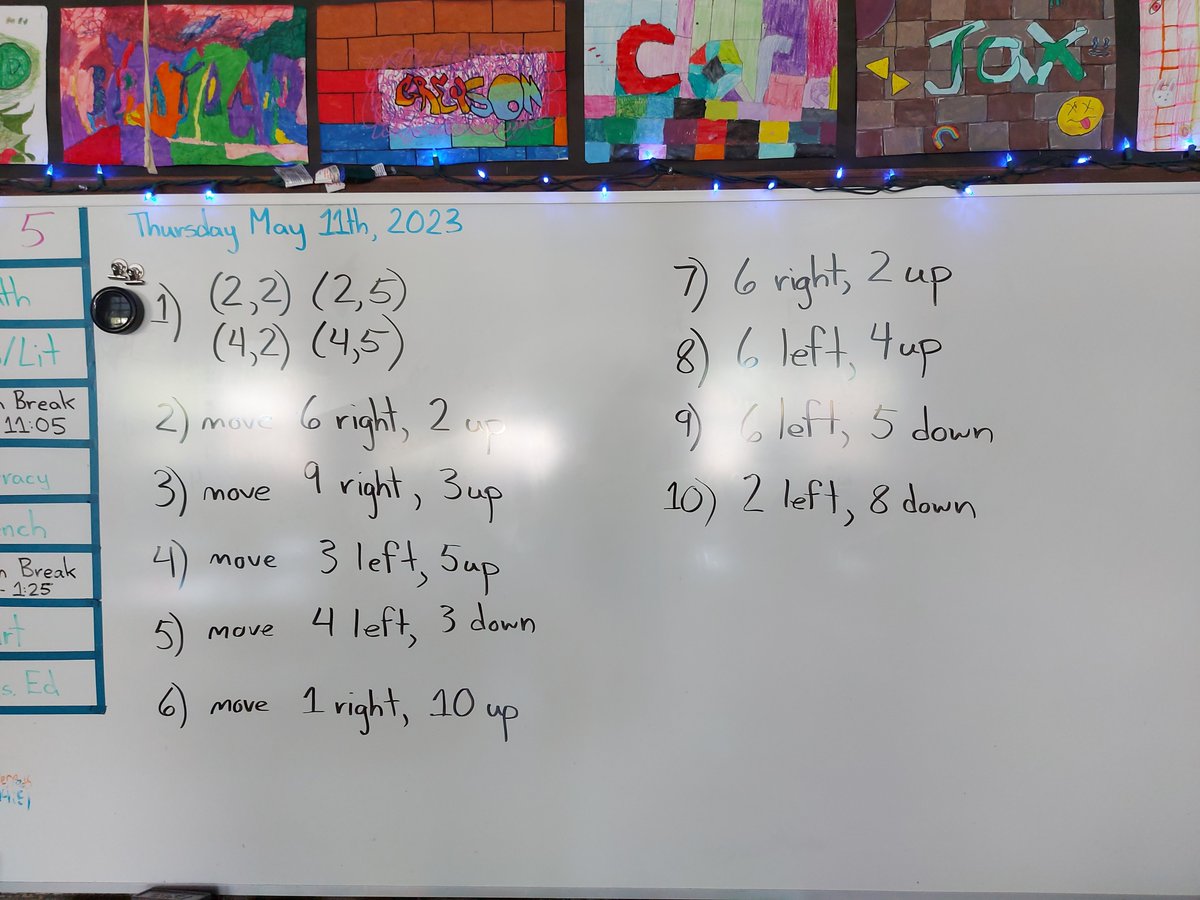 GREYSON
JOX
5
Thursday May 11th, 2023
1) (2,2) (2,5)
(4,2) (4,5)
2) move 6 right, 2 up
3) move 9 right, 3 up
4) move 3 left, 5 up
5) move 4 left, 3 down
6) move 1 right, 10 up
7) 6 right, 2 up
8) 6 left, 4 up
9) 6 left, 5 down
10) 2 left, 8 down
th
/Lit
Break
11:05
racy
nch
Break
- 1:25
rt
s. Ed